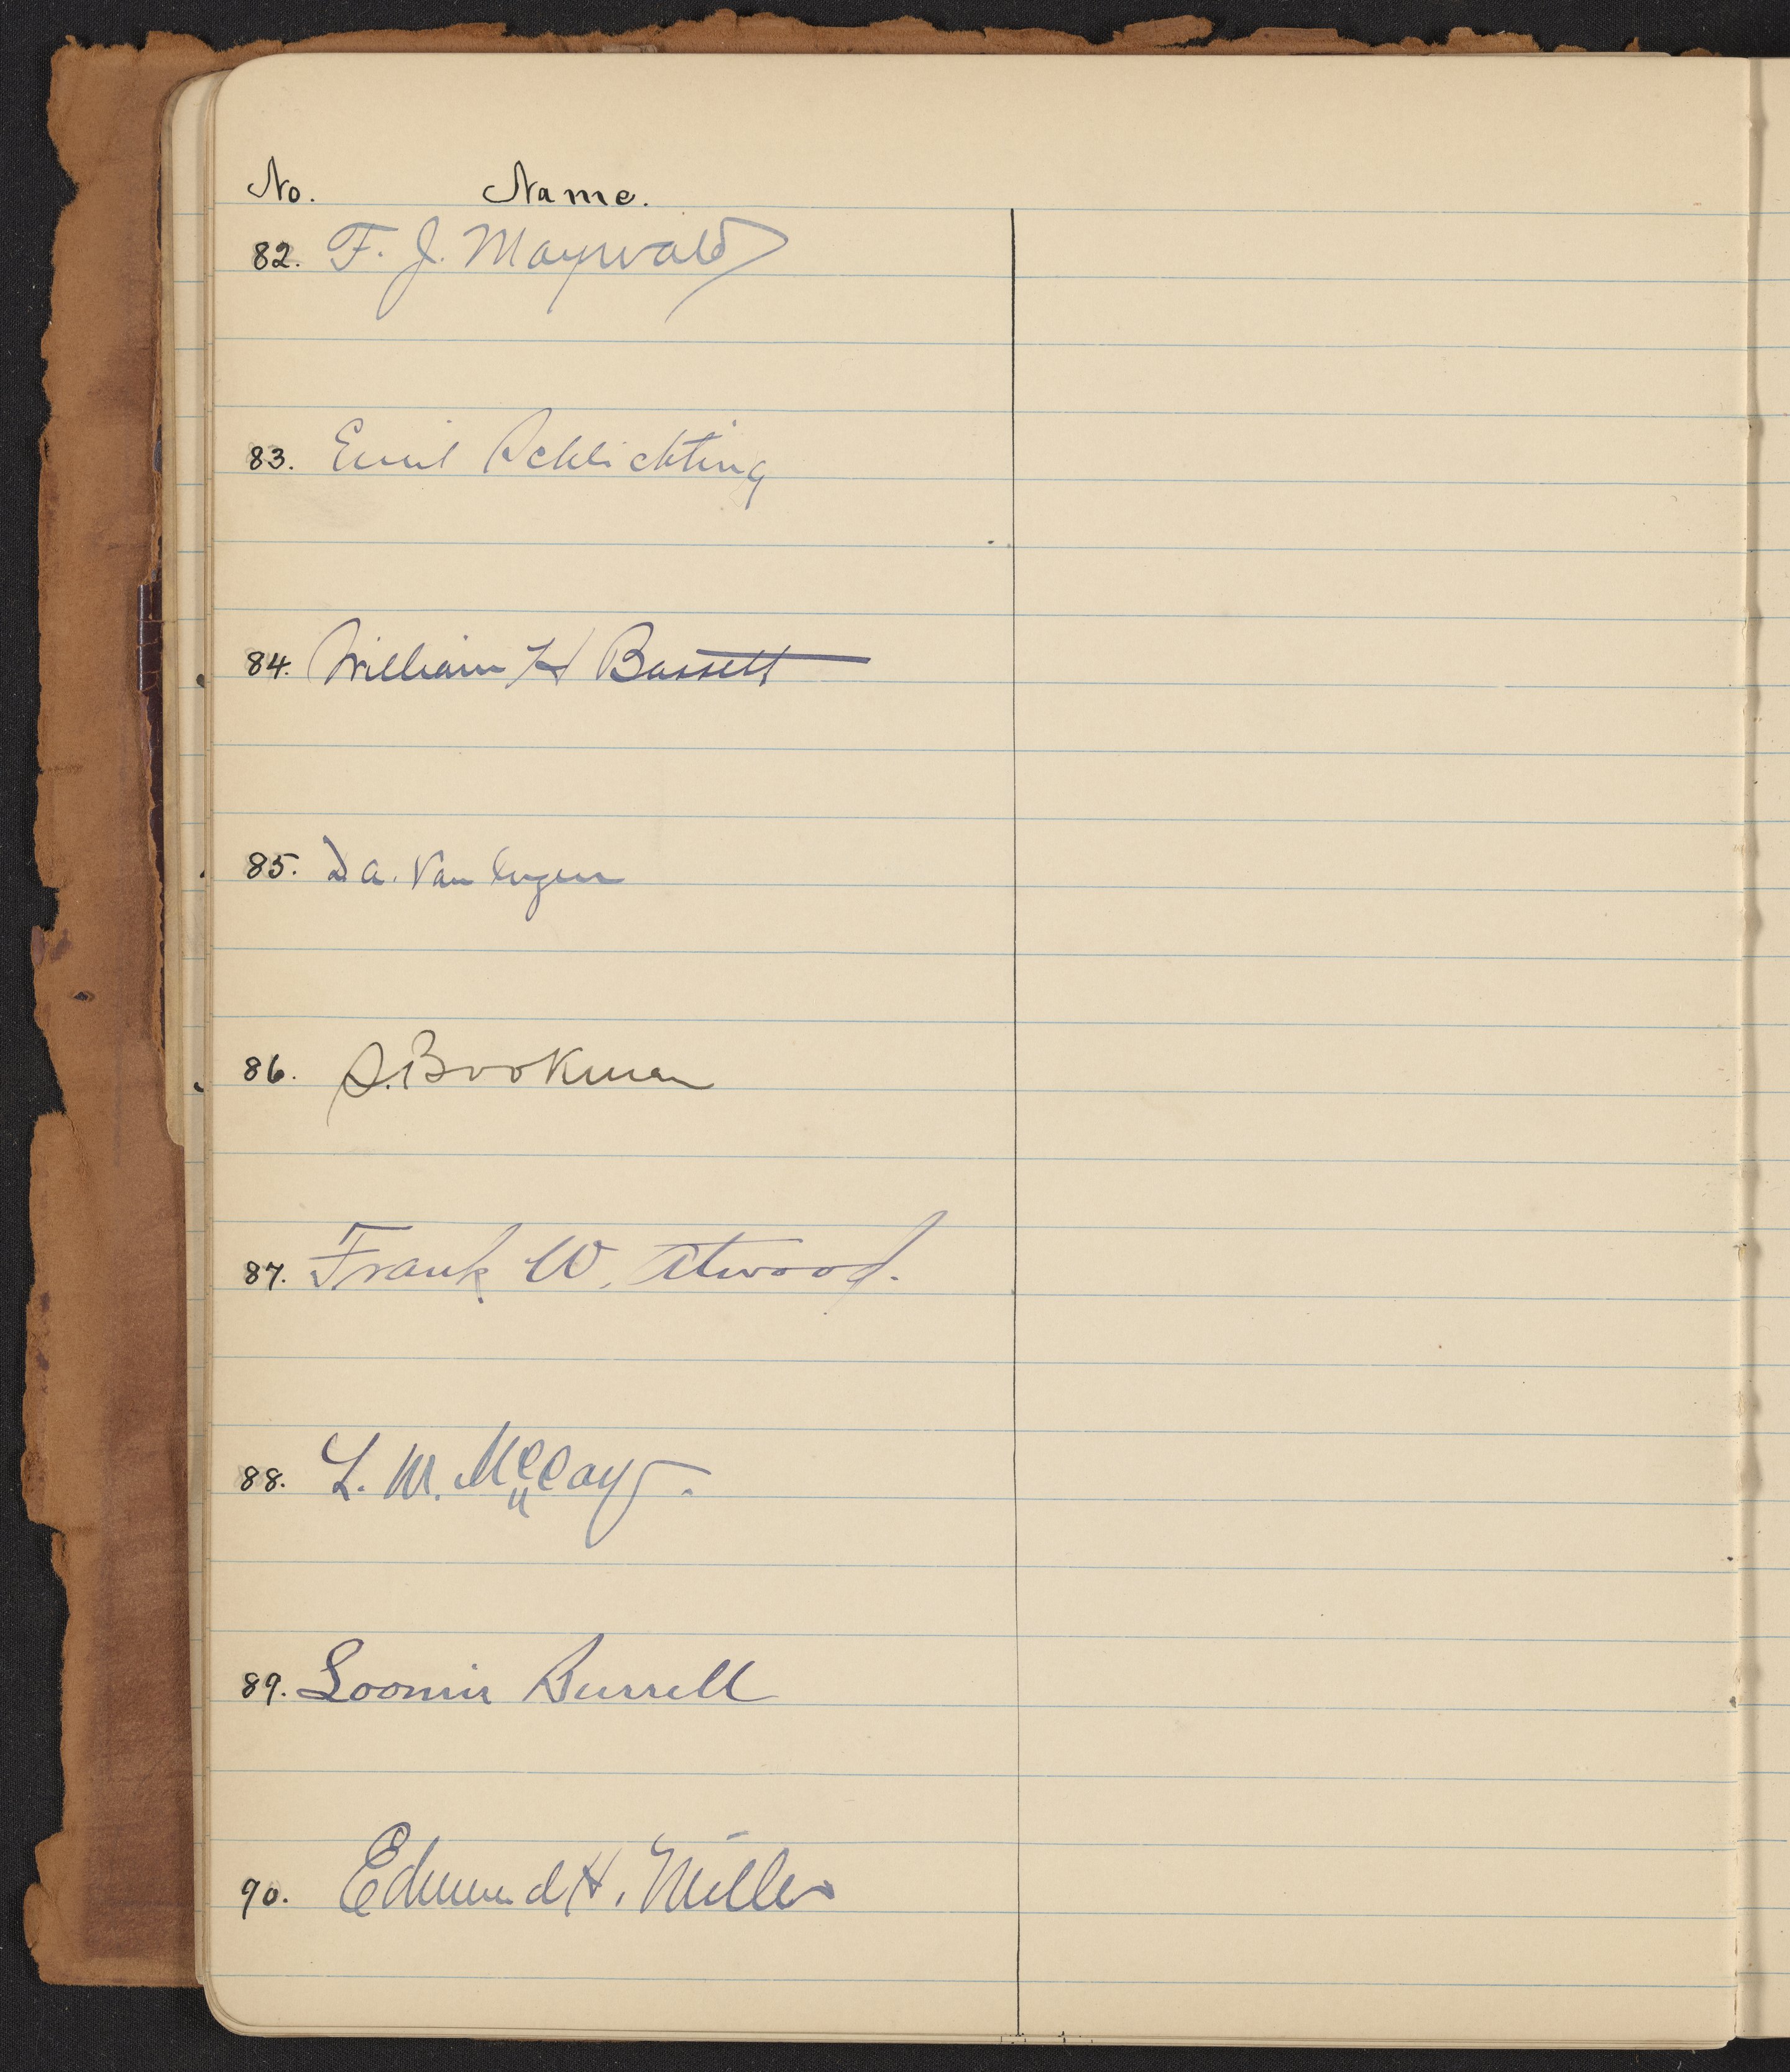 No. Name.
82. F. J. Maywald
83. Emil Schlichting
84. William H Bassett
85. D. A. Van Ingen
86. S. Bookman
87. Frank W. Atwood.
88. L. W. McCay.
89. Loomis Burrell
90. Edmund H. Miller